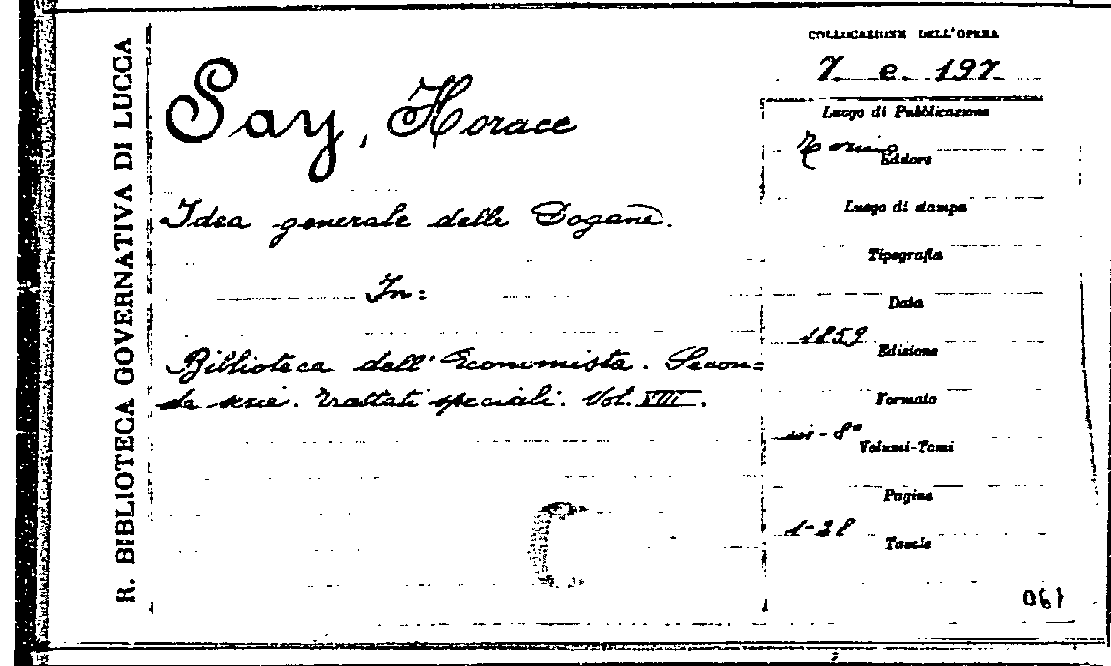 R. BIBLIOTECA GOVERNATIVA DI LUCCA
Say, Horace
Idea generale delle Dogane.
In:
Biblioteca dell'Economista. Secon=
da serie. Trattati speciali. Vol. VIII.
C
COLLOCAZIONE DELL'OPERA
7. e. 197.
Luogo di Pubblicazione
Torino
Editore
Luogo di stampa
Tipografia
Data
1859
Edizione
Formato
in-8°
Volumi-Tomi
Pagine
1-28
Tavole